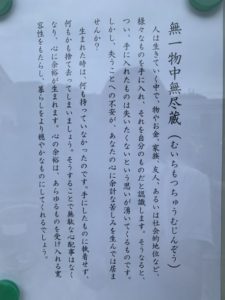 無一物中無尽蔵（むいちもつちゅうむじんぞう）
人は生きていく中で、物やお金、家族、友人、あるいは社会的地位など、
様々なものを手に入れ、それを自分のものだと認識します。そうなると、
つい、手に入れたものは失いたくないという思いが湧いてくるものです。
しかし、失うことへの不安が、あなたの心に余計な苦しみを生んでは居ま
せんか？
生まれた時は、何も持っていなかったのです。手にしたものに執着せず、
何もかも捨て去ってしまいましょう。そうすることで無駄な心配事はなく
なり、心に余裕が生まれます。心の余裕は、あらゆるものを受け入れる寛
容性をもたらし、暮らしをより穏やかなものにしてくれるでしょう。